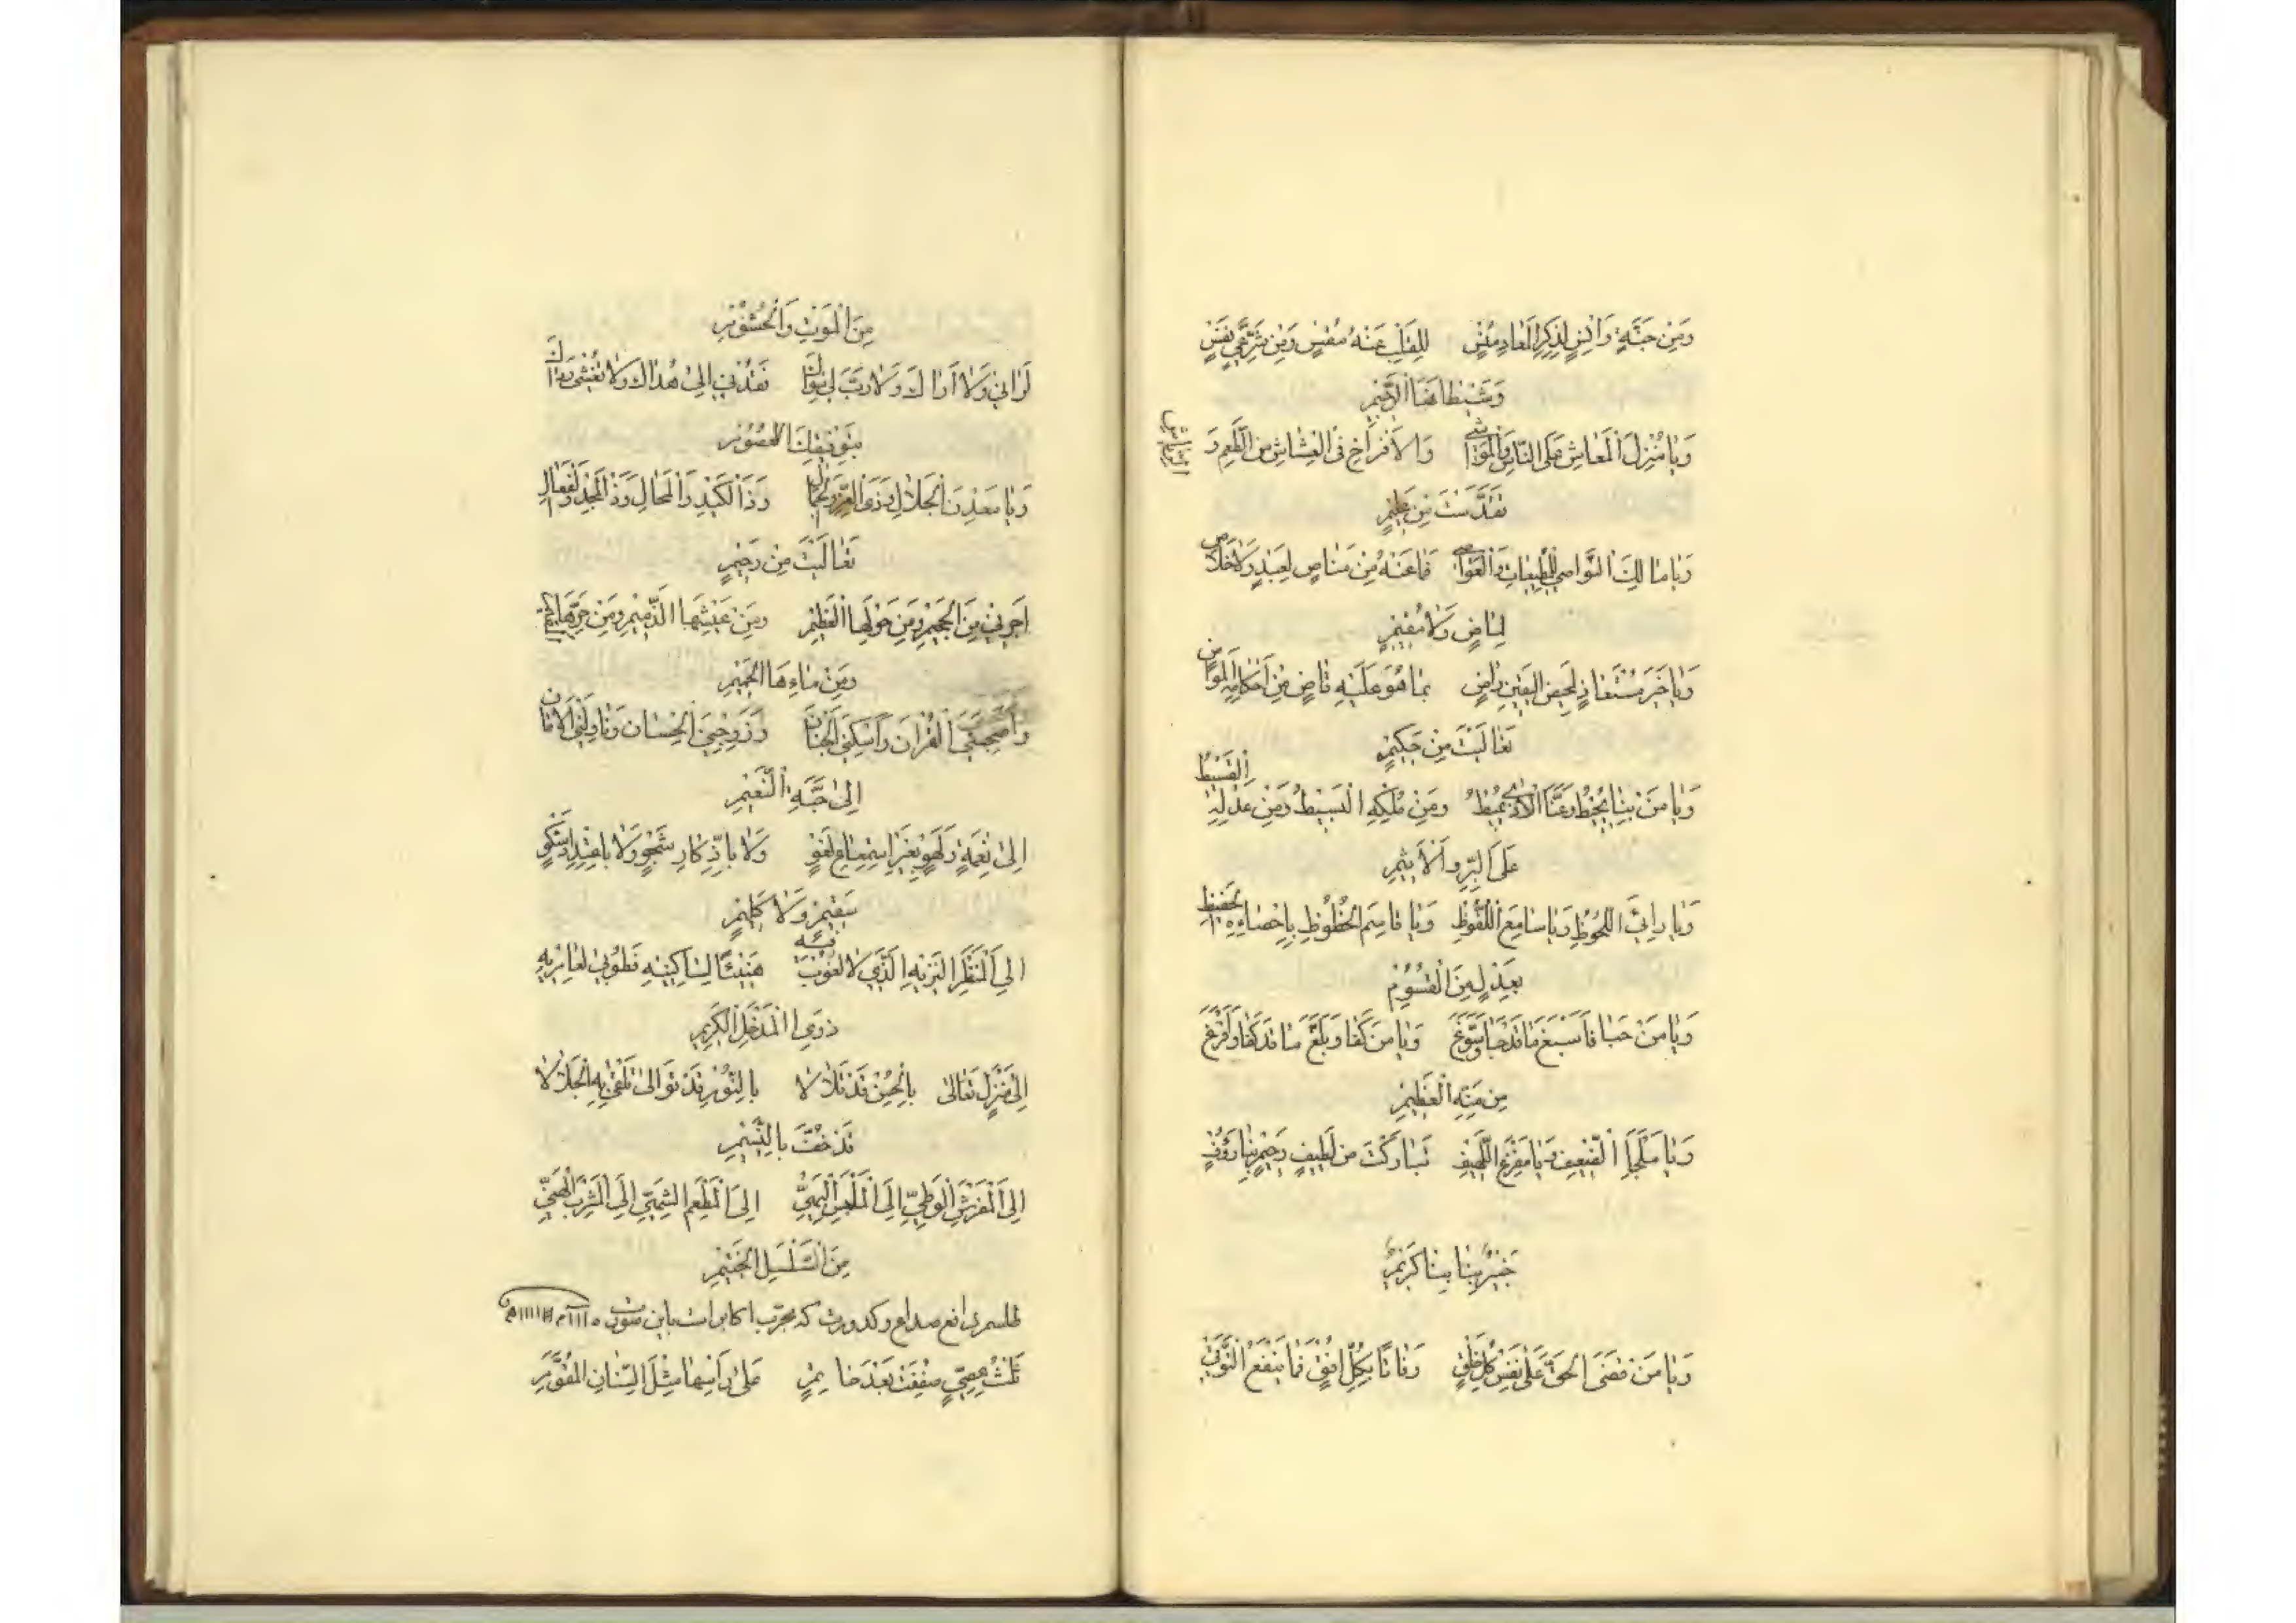 وَمِنْ جَنَّةٍ وَاُنْسٍ لِذِكْرِ الْمَعَادِ مُنْسٍ لِلْقَلْبِ عَنْهُ مُقْسٍ وَمِنْ شَرِّ غَيِّ نَفْسٍ
وَشَيْطَانِهَا الرَّجِيمِ
وَيَا مُنْزِلَ الْمَعَاشِ عَلَى النَّاسِ وَالْمَوَاشِي وَالْاَفْرَاخِ فِي الْعِشَاشِ مِنَ الطُّعْمِ وَ الرِّيَاشِ
تَقَدَّسْتَ مِنْ
وَيَا مَالِكَ النَّوَاصِي لِلْمُطِيعَاتِ وَالْعَوَاصِي فَمَا عَنْهُ مِنْ مَنَاصٍ لِعَبْدٍ وَلَا خَلَاصٍ
لِمَاضٍ وَلَا مُقِيمٍ
وَيَا خَيْرَ مُسْتَعَاذٍ لِمَحْضِ الْيَقِينِ رَاضٍ بِمَا هُوَ عَلَيْهِ قَاضٍ مِنْ اَحْكَامِهِ الْمَوَاضِ
تَعَالَيْتَ مِنْ حَكِيمٍ
وَيَا مَنْ بِنَا يُحِيطُ وَعَنَّا الْاَذَى يُمِيطُ وَمِنْ مُلْكِهِ الْبَسِيطُ وَمِنْ عَدْلِهِ الْقَسِيطُ
عَلَى الْبِرِّ وَالْاَثِيمِ
وَيَا رَائِيَ اللُّحُوظِ وَيَا سَامِعَ اللُّفُوظِ وَيَا قَاسِمَ الْحُظُوظِ بِاِحْصَائِهِ الْحَفِيظِ
بِعَدْلٍ مِنَ الْقُسُومِ
وَيَا مَنْ حَبَا فَاَسْبَغَ مَا قَدْ حَبَا وَسَوَّغَ وَيَا مَنْ كَفَا وَبَلَّغَ مَا قَدْ كَفَا وَفَرَّغَ
مِنْ مَنِّهِ الْعَظِيمِ
وَيَا مَلْجَأَ الضَّعِيفِ وَيَا مَفْزَعَ اللَّهِيفِ تَبَارَكْتَ مِنْ لَطِيفٍ رَحِيمٍ بِنَا رَؤُفٍ
خَبِيرٌ بِنَا كَرِيمٌ
وَيَا مَنْ قَضَى الْحَقَّ عَلَى نَفْسِ كُلِّ خَلْقٍ وَفَاتًا بِكُلِّ اُفْقٍ فَمَا يَنْفَعُ التَّوَقِّي
مِنَ الْمَوْتِ وَالْحُشُومِ
تَرَانِي وَلَا اَرَاكَ وَلَا رَبَّ لِي سِوَاكَ فَقُدْنِي اِلَى هُدَاكَ وَلَا تُغْشِنِي رَدَاكَ
بِتَوْفِيقِكَ الْعَصُومِ
وَيَا مَعْدِنَ الْجَلَالِ وَذَا الْعِزِّ وَالْجَمَالِ وَذَا الْكَيْدِ وَالْمِحَالِ وَذَا الْمَجْدِ وَالْفَعَالِ
تَعَالَيْتَ مِنْ رَحِيمٍ
اَجِرْنِي مِنَ الْجَحِيمِ وَمِنْ هَوْلِهَا الْعَظِيمِ وَمِنْ عَيْشِهَا الذَّمِيمِ وَمِنْ حَرِّهَا الْمُقِيمِ
وَمِنْ مَاءِهَا الْحَمِيمِ
وَاَصْحِبْنِي الْقُرْاٰنَ وَاَسْكِنِّي الْجِنَانَ وَزَوِّجْنِي الْحِسَانَ وَنَاوِلْنِي الْاَمَانَ
اِلَى جَنَّةِ النَّعِيمِ
اِلَى نِعْمَةٍ وَلَهْوٍ بِغَيْرِ اسْتِمَاعِ لَغْوٍ وَلَا بِادِّكَارِ شَجْوٍ وَلَا بِاعْتِدَادِ شَكْوٍ
سَقِيمٍ وَلَا كَلِيمٍ
اِلَى الْمَنْظَرِ النَّزِيهِ الَّذِي لَا لُغُوبَ فِيهِ هَنِيئًا لِسَاكِنِيهِ فَطُوبَى لِعَامِرِيهِ
ذَوِي الْمَدْخَلِ الْكَرِيمِ
اِلَى مَنْزِلٍ تَعَالَى بِالْحُسْنِ قَدْ تَلَالَا بِالنُّورِ قَدْ تَوَالَى تَلْقَى بِهِ الْجَلَالَا
قَدْ حُفَّتْ بِالنَّسِيمِ
اِلَى الْمَفْرَشِ الْوَطِيِّ اِلَى الْمَلْبَسِ الْبَهِيِّ اِلَى الْمَطْعَمِ الشَّهِيِّ اِلَى الْمَشْرَبِ الْهَنِيِّ
مِنَ السَّلْسَلِ الْخَتِيمِ
طلسم رافع صداع وكدورت كه مجرّب اكابر است باين
ثَلٰثُ عِصِيٍّ صُفِّفَتْ بَعْدَ خَاتِمٍ عَلَى رَأْسِهَا مِثْلُ السِّنَانِ الْمُقَوَّمِ